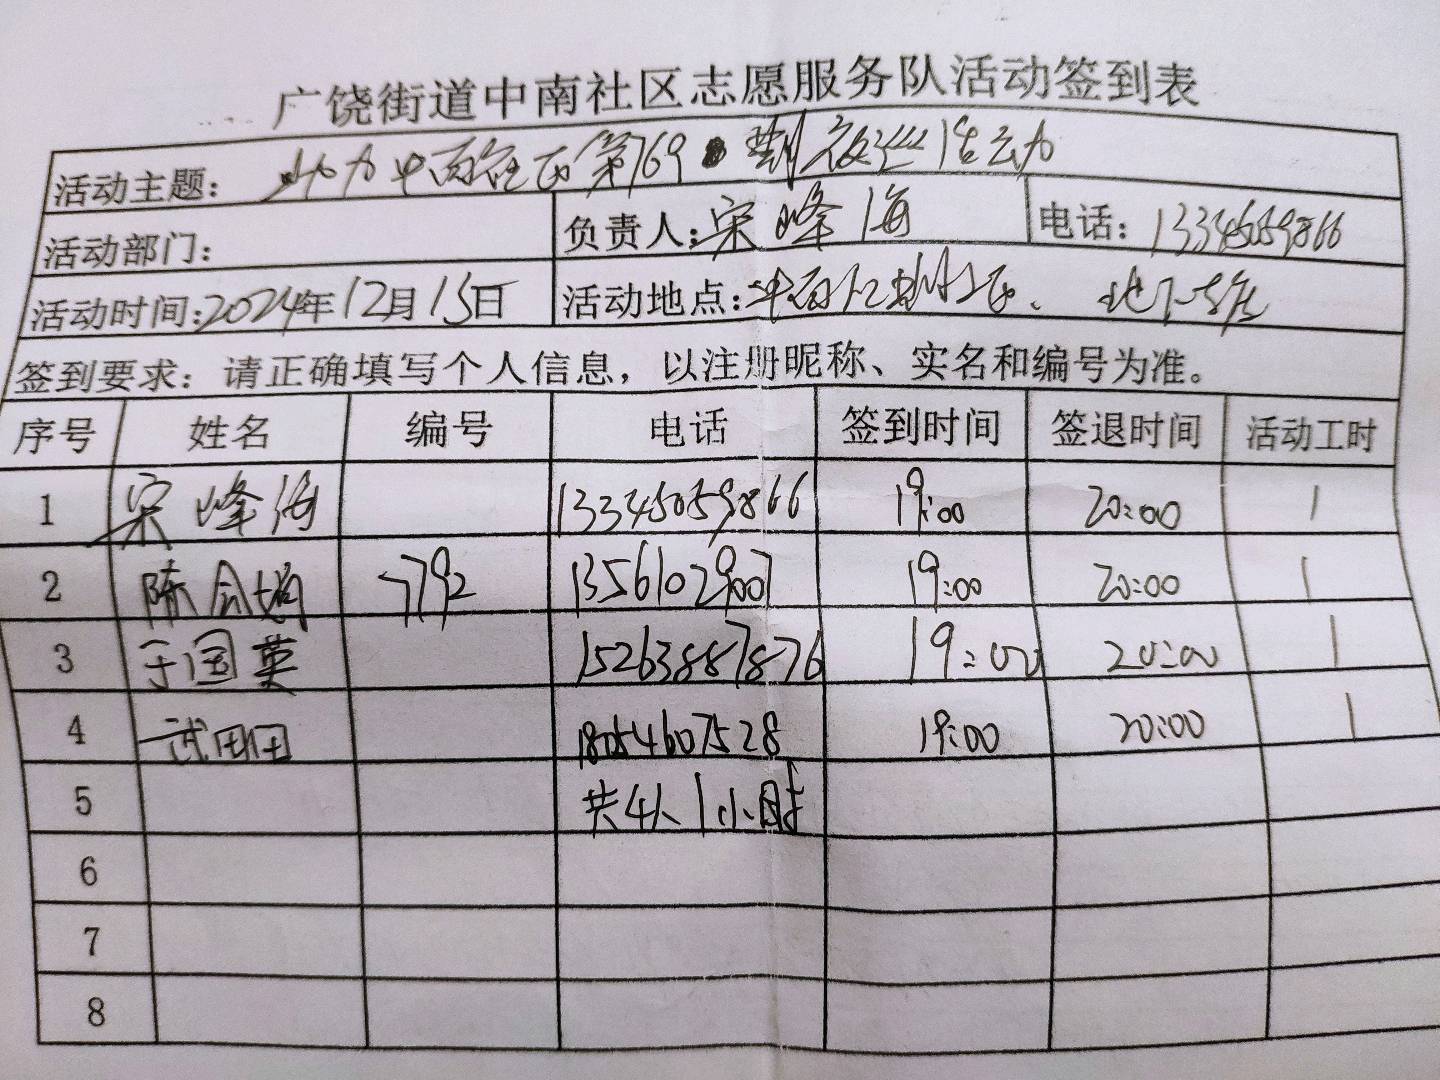 广饶街道中南社区志愿服务队活动签到表
活动主题： 第769 夜巡活动
活动部门： 负责人：宋峰海 电话：13345059866
活动时间：2024年12月15日 活动地点：
签到要求：请正确填写个人信息，以注册昵称、实名和编号为准。
序号 姓名 编号 电话 签到时间 签退时间 活动工时
1 宋峰海 13345059866 19:00 20:00 1
2 陈会娟 7792 13561029007 19:00 20:00 1
3 于国英 15263887876 19:00 20:00 1
4 武田田 18054607528 19:00 20:00 1
5 共4人1小时
6
7
8